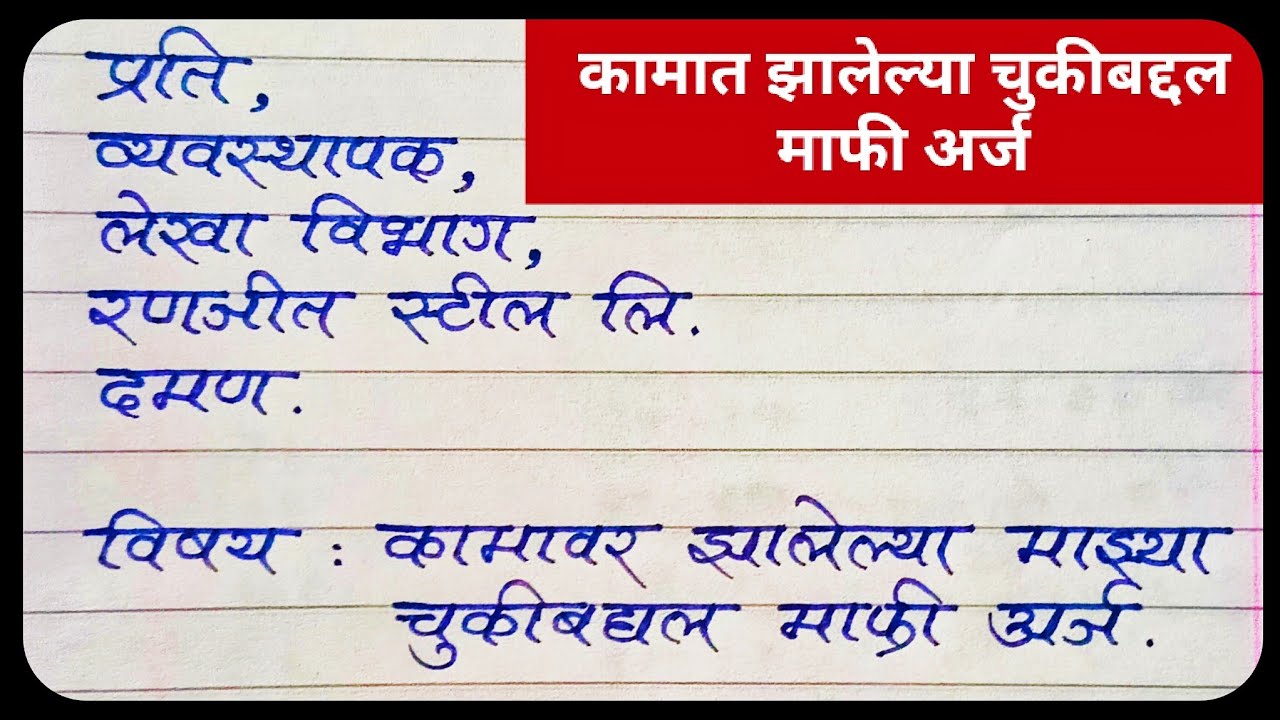 कामात झालेल्या चुकीबद्दल
माफी अर्ज
प्रति,
व्यवस्थापक,
लेखा विभाग,
रणजीत स्टील लि.
दमण.
विषय : कामावर झालेल्या माझ्या
चुकीबद्यल माफी अर्ज.